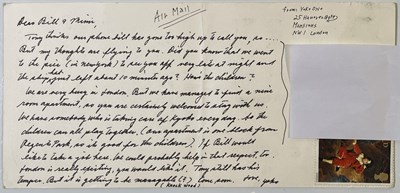 Air Mail
from: Yoko Ono
25 Hanover Gates
Mansions
NW1 London
Dear Bill & Mimi
Tony thinks our phone bill has gone too high to call you, so ...
But my thoughts are flying to you. Did you know that we went
to the pier (in newyork) to see you off very late at night and
the ship just left about 10 minutes ago? How's the children?
We are very busy in London. But we have managed to find a nice
room apartment, so you are certainly welcomed to stay with us.
We have somebody who is taking care of Kyoko every day. So the
children can all play together. (our apartment is one block from
Regents Park, so its good for the children). If Bill would
like to take a job here, we could probably help in that respect too.
London is really exciting, you would like it. Tony still has his
temper. But it is getting to be manageable (?) some room. love, yoko
(knock wood)